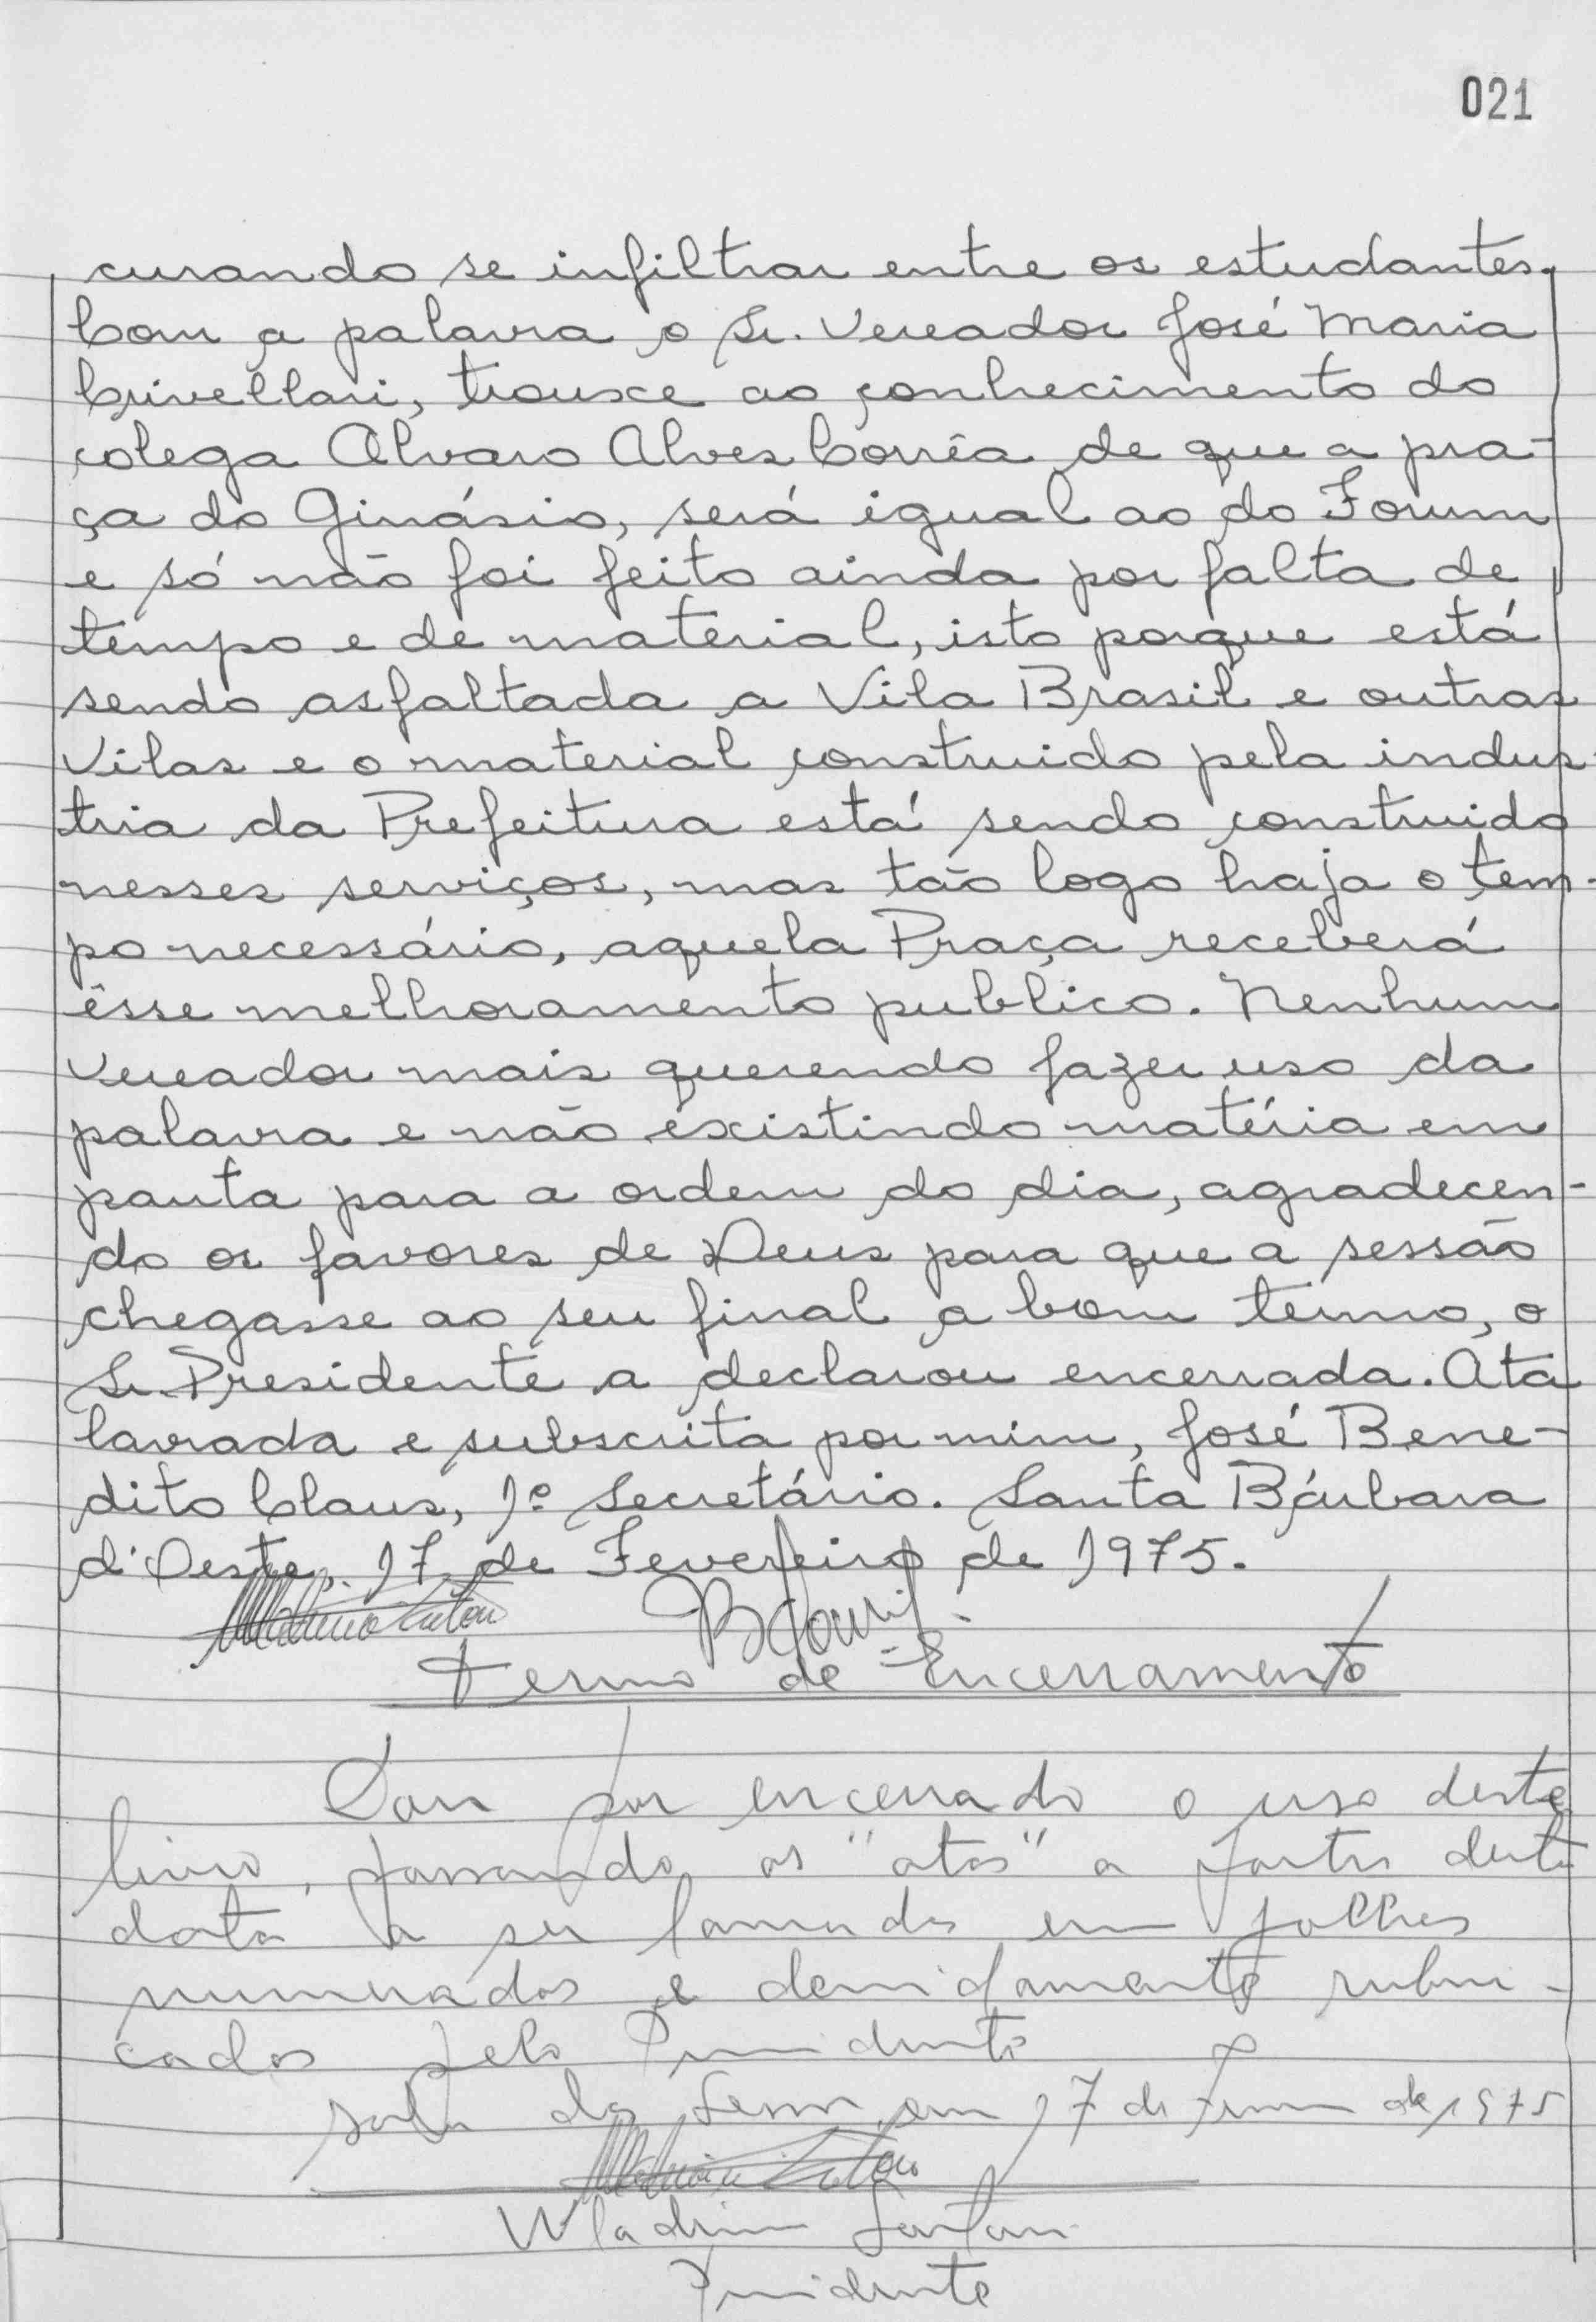 021
curando se infiltrar entre os estudantes.
Com a palavra o Sr. Vereador José Maria
Crivellari, trouxe ao conhecimento do
colega Alvaro Alves Corrêa de que a pra-
ça do Ginásio, será igual ao do Forum
e só não foi feito ainda por falta de
tempo e de material, isto porque está
sendo asfaltada a Vila Brasil e outras
Vilas e o material construido pela indus-
tria da Prefeitura está sendo construido
nesses serviços, mas tão logo haja o tem-
po necessário, aquela Praça receberá
êsse melhoramento publico. Nenhum
Vereador mais querendo fazer uso da
palavra e não existindo matéria em
pauta para a ordem do dia, agradecen-
do os favores de Deus para que a sessão
chegasse ao seu final a bom termo, o
Sr. Presidente a declarou encerrada. Ata
lavrada e subscrita por mim, José Bene-
dito Claus, 1º Secretário. Santa Bárbara
d'Oeste, 17 de Fevereiro de 1975.
Termo de Encerramento
Dou por encerrado o uso deste
livro, passando as "atas" a partir desta
data a ser lavradas em folhas
numeradas e devidamente rubri-
cadas pelo Presidente
Sala das Sessões, em 17 de Fevereiro de 1975
Presidente